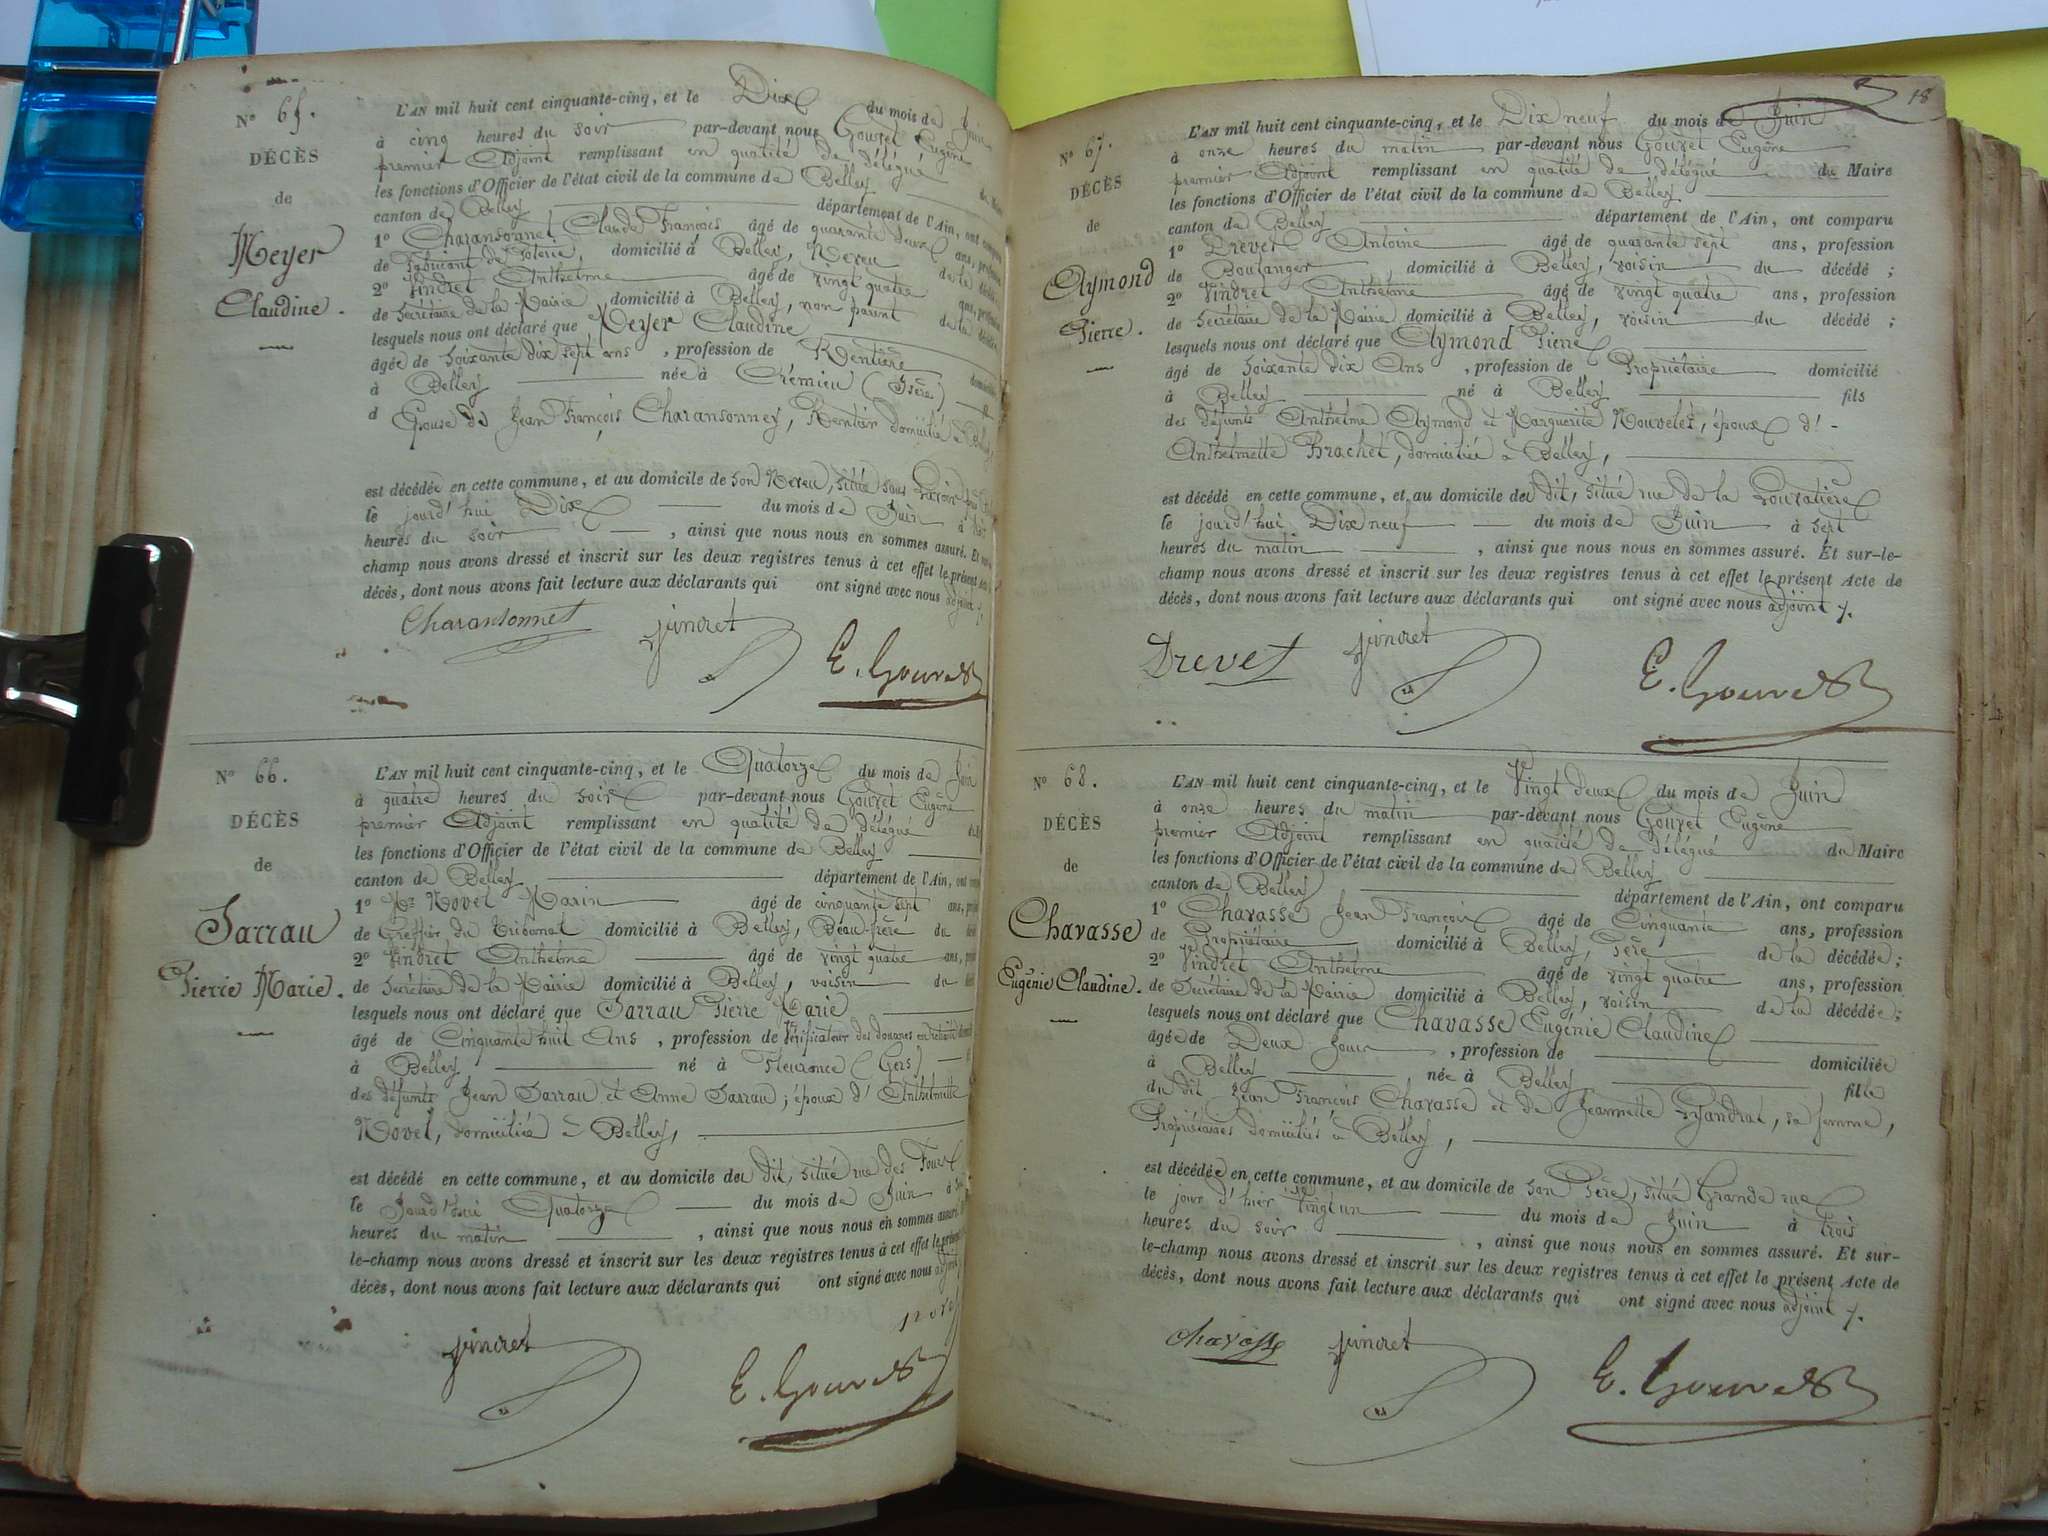 N° 65.
DÉCÈS
de
Meyer
Claudine.
L'AN mil huit cent cinquante-cinq, et le Dix du mois de Juin
à cinq heures du soir par-devant nous Gouvet Eugène
premier Adjoint remplissant en qualité de délégué du Maire
les fonctions d'Officier de l'état civil de la commune de Belley
canton de Belley département de l'Ain, ont comparu
1° Charansonnet Claude François âgé de quarante deux ans, profession
de fabricant de Poterie, domicilié à Belley, Neveu de la décédée
2° Vindret Anthelme âgé de vingt quatre ans, profession
de Secrétaire de la Mairie domicilié à Belley, non parent de la décédée
lesquels nous ont déclaré que Meyer Claudine
âgée de soixante dix sept ans, profession de Rentière domiciliée
à Belley née à Crémieu (Isère)
d Epouse de Jean François Charansonney, Rentier domicilié à Belley,
est décédée en cette commune, et au domicile de son Neveu, situé sous
le jourd'hui Dix du mois de Juin à
heures du soir, ainsi que nous nous en sommes assuré. Et sur-le-
champ nous avons dressé et inscrit sur les deux registres tenus à cet effet le présent
décès, dont nous avons fait lecture aux déclarants qui ont signé avec nous adjoint
Charansonnet Vindret E. Gouvet
N° 66.
DÉCÈS
de
Sarrau
Pierre Marie.
L'AN mil huit cent cinquante-cinq, et le Quatorze du mois de Juin
à quatre heures du soir par-devant nous Gouvet Eugène
premier Adjoint remplissant en qualité de délégué
les fonctions d'Officier de l'état civil de la commune de Belley
canton de Belley département de l'Ain, ont
1° Mr Novel Marin âgé de cinquante sept ans,
de Greffier du Tribunal domicilié à Belley, Beau-frère du
2° Vindret Anthelme âgé de vingt quatre ans,
de Secrétaire de la Mairie domicilié à Belley, voisin du
lesquels nous ont déclaré que Sarrau Pierre Marie
âgé de Cinquante huit Ans, profession de Vérificateur des douanes en retraite
à Belley né à Fleurance (Gers)
des défunts Jean Sarrau et Anne Sarrau; époux d'Anthelmette
Novel, domiciliée à Belley,
est décédé en cette commune, et au domicile du dit, situé rue des Fours
le Jourd'hui Quatorze du mois de Juin à
heures du matin, ainsi que nous nous en sommes assuré.
le-champ nous avons dressé et inscrit sur les deux registres tenus à cet effet le présent
décès, dont nous avons fait lecture aux déclarants qui ont signé avec nous adjoint
Novel
Vindret E. Gouvet
18
N° 67.
DÉCÈS
de
Aymond
Pierre.
L'AN mil huit cent cinquante-cinq, et le Dix neuf du mois de Juin
à onze heures du matin par-devant nous Gouvet Eugène
premier Adjoint remplissant en qualité de délégué du Maire
les fonctions d'Officier de l'état civil de la commune de Belley
canton de Belley département de l'Ain, ont comparu
1° Drevet Antoine âgé de quarante sept ans, profession
de Boulanger, domicilié à Belley, voisin du décédé;
2° Vindret Anthelme âgé de vingt quatre ans, profession
de Secrétaire de la Mairie domicilié à Belley, voisin du décédé;
lesquels nous ont déclaré que Aymond Pierre
âgé de Soixante dix Ans, profession de Propriétaire domicilié
à Belley né à Belley fils
des défunts Anthelme Aymond et Marguerite Nouvelet, époux d'-
Anthelmette Brachet, domiciliée à Belley,
est décédé en cette commune, et au domicile du dit, situé rue de la
le jourd'hui Dix neuf du mois de Juin à sept
heures du matin, ainsi que nous nous en sommes assuré. Et sur-le-
champ nous avons dressé et inscrit sur les deux registres tenus à cet effet le présent Acte de
décès, dont nous avons fait lecture aux déclarants qui ont signé avec nous adjoint
Drevet Vindret E. Gouvet
N° 68.
DÉCÈS
de
Chavasse
Eugénie Claudine.
L'AN mil huit cent cinquante-cinq, et le Vingt deux du mois de Juin
à onze heures du matin par-devant nous Gouvet Eugène
premier Adjoint remplissant en qualité de délégué du Maire
les fonctions d'Officier de l'état civil de la commune de Belley
canton de Belley département de l'Ain, ont comparu
1° Chavasse Jean François âgé de Cinquante ans, profession
de Propriétaire domicilié à Belley, Père de la décédée;
2° Vindret Anthelme âgé de vingt quatre ans, profession
de Secrétaire de la Mairie domicilié à Belley, voisin de la décédée;
lesquels nous ont déclaré que Chavasse Eugénie Claudine
âgée de Deux Jours, profession de domiciliée
à Belley née à Belley fille
du dit Jean François Chavasse et de Jeannette sa femme,
Propriétaires domiciliés à Belley,
est décédée en cette commune, et au domicile de son Père, situé Grande rue
le jour d'hier Vingt un du mois de Juin à trois
heures du soir, ainsi que nous nous en sommes assuré. Et sur-
le-champ nous avons dressé et inscrit sur les deux registres tenus à cet effet le présent Acte de
décès, dont nous avons fait lecture aux déclarants qui ont signé avec nous adjoint
Chavasse Vindret E. Gouvet